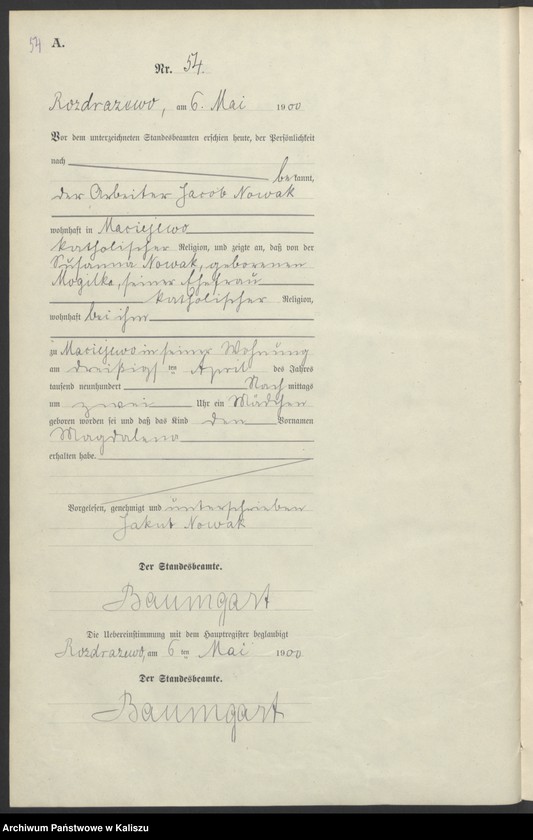 54 A.
Nr. 54.
Rozdrazewo, am 6. Mai 1900
Vor dem unterzeichneten Standesbeamten erschien heute, der Persönlichkeit
nach
bekannt,
der Arbeiter Jacob Nowak
wohnhaft in Maciejewo
katholischer Religion, und zeigte an, daß von der
Susanna Nowak, geborenen
Mogilka, seiner Ehefrau
katholischer Religion,
wohnhaft bei ihm
zu Maciejewo in seiner Wohnung
am dreißigsten April des Jahres
tausend neunhundert Nachmittags
um zwei Uhr ein Mädchen
geboren worden sei und daß das Kind den Vornamen
Magdalena
erhalten habe.
Vorgelesen, genehmigt und unterschrieben
Jakub Nowak
Der Standesbeamte.
Baumgart
Die Uebereinstimmung mit dem Hauptregister beglaubigt
Rozdrazewo, am 6 ten Mai 1900
Der Standesbeamte.
Baumgart
Archiwum Państwowe w Kaliszu